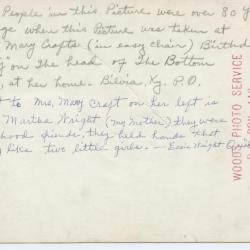 People in this Picture were over 80 Y
ge when this Picture was taken at
Mary Crafts (in easy chair) Birthd
on The head of The Bottom
, at her home. Bilvia, Ky. P.O.
t to Mrs. Mary Craft on her left is
Martha Wright (my Mother) they were
hood friends, they held hands that
y like two little girls. — Essie Wright
WOODS PHOTO SERVICE